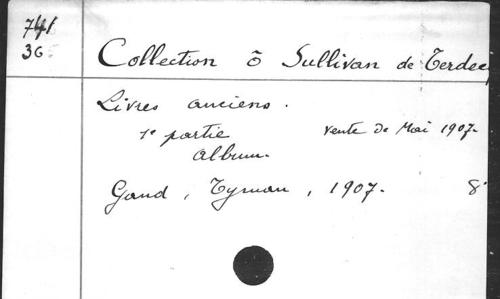 741
36
Collection ō Sullivan de Terdec
Livres anciens.
1e partie vente de Mai 1907.
album.
Gand, Tyman, 1907. 8°